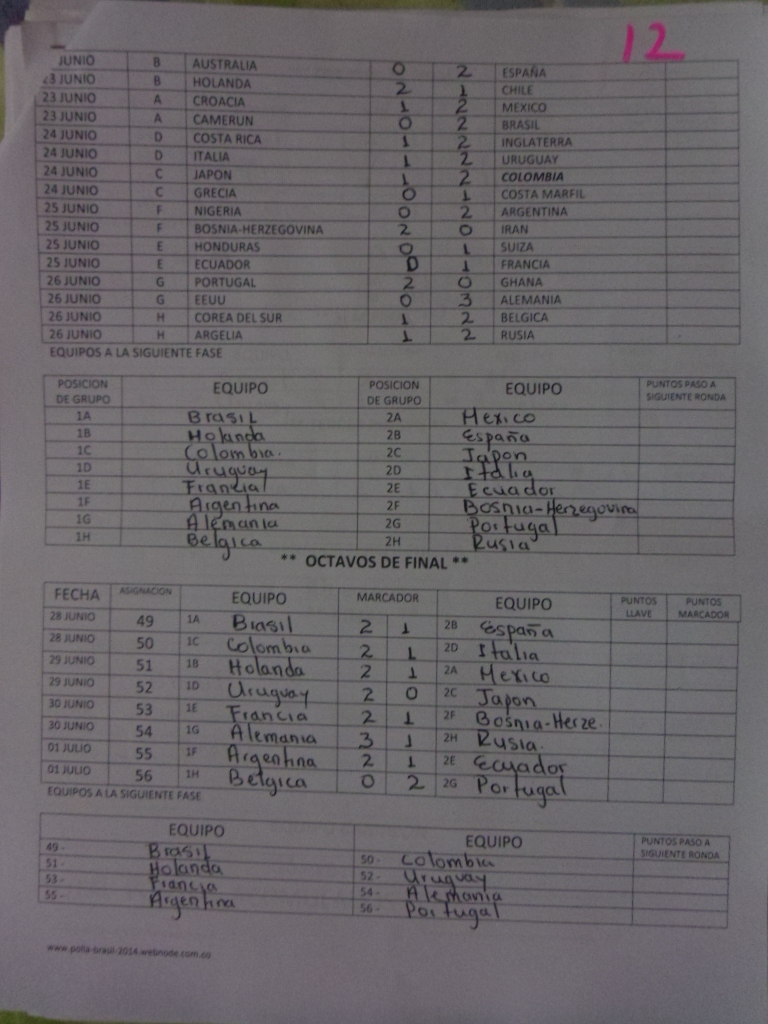 12
JUNIO B AUSTRALIA 0 2 ESPAÑA
23 JUNIO B HOLANDA 2 1 CHILE
23 JUNIO A CROACIA 1 2 MEXICO
23 JUNIO A CAMERUN 0 2 BRASIL
24 JUNIO D COSTA RICA 1 2 INGLATERRA
24 JUNIO D ITALIA 1 2 URUGUAY
24 JUNIO C JAPON 1 2 COLOMBIA
24 JUNIO C GRECIA 0 1 COSTA MARFIL
25 JUNIO F NIGERIA 0 2 ARGENTINA
25 JUNIO F BOSNIA-HERZEGOVINA 2 0 IRAN
25 JUNIO E HONDURAS 0 1 SUIZA
25 JUNIO E ECUADOR 0 1 FRANCIA
26 JUNIO G PORTUGAL 2 0 GHANA
26 JUNIO G EEUU 0 3 ALEMANIA
26 JUNIO H COREA DEL SUR 1 2 BELGICA
26 JUNIO H ARGELIA 1 2 RUSIA
EQUIPOS A LA SIGUIENTE FASE
POSICION DE GRUPO EQUIPO POSICION DE GRUPO EQUIPO PUNTOS PASO A SIGUIENTE RONDA
1A Brasil 2A Mexico
1B Holanda 2B España
1C Colombia. 2C Japon
1D Uruguay 2D Italia
1E Francia 2E Ecuador
1F Argentina 2F Bosnia-Herzegovina
1G Alemania 2G Portugal
1H Belgica 2H Rusia
** OCTAVOS DE FINAL **
FECHA ASIGNACION EQUIPO MARCADOR EQUIPO PUNTOS LLAVE PUNTOS MARCADOR
28 JUNIO 49 1A Brasil 2 1 2B España
28 JUNIO 50 1C Colombia 2 1 2D Italia
29 JUNIO 51 1B Holanda 2 1 2A Mexico
29 JUNIO 52 1D Uruguay 2 0 2C Japon
30 JUNIO 53 1E Francia 2 1 2F Bosnia-Herze.
30 JUNIO 54 1G Alemania 3 1 2H Rusia.
01 JULIO 55 1F Argentina 2 1 2E Ecuador
01 JULIO 56 1H Belgica 0 2 2G Portugal
EQUIPOS A LA SIGUIENTE FASE
EQUIPO EQUIPO PUNTOS PASO A SIGUIENTE RONDA
49 - Brasil 50 - Colombia
51 - Holanda 52 - Uruguay
53 - Francia 54 - Alemania
55 - Argentina 56 - Portugal
www.polla-brasil-2014.webnode.com.co